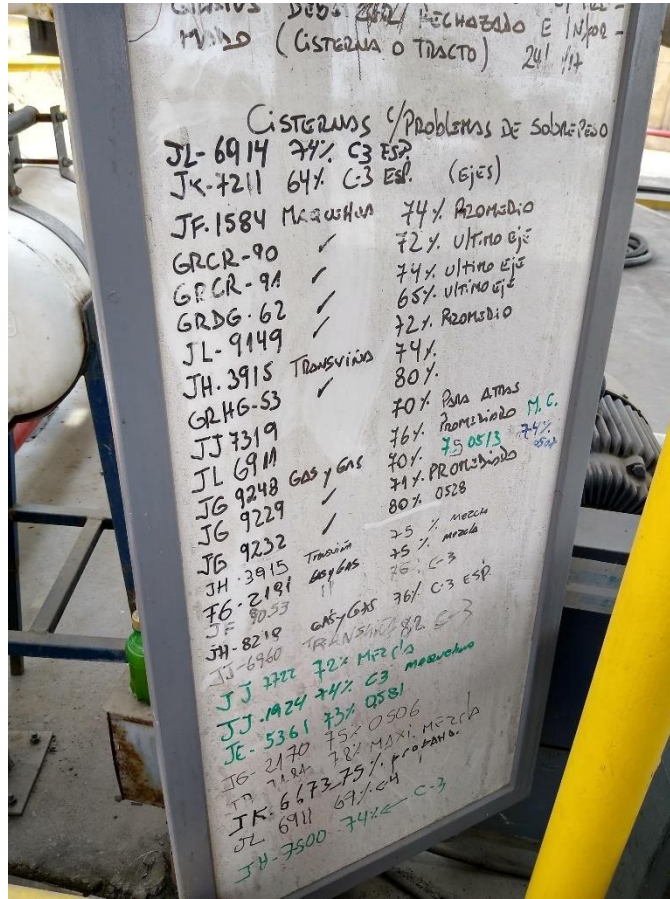 DEBE SER RECHAZADO E INFOR-
MADO (CISTERNA O TRACTO)
CISTERNAS C/PROBLEMAS DE SOBREPESO
JL-6914 74% C3 ESP.
JK-7211 64% C-3 ESP. (EJES)
JF.1584 74% PROMEDIO
GRCR-90 ✓ 72% ULTIMO EJE
GRCR-91 ✓ 74% ULTIMO EJE
GRDG-62 ✓ 65% ULTIMO EJE
JL-9149 ✓ 72% PROMEDIO
JH.3915 TRANSVIÑA 74%
GRHG-53 ✓ 80%
JJ 7319 70% PARA ATRAS
JL 6911 76% PROMEDIADO M.C.
JG 9248 GAS y GAS 70% 75 0513 74%
JG 9229 ✓ 71% PROMEDIADO
JG 9232 ✓ 80% 0528
JH-3915 75% MEZCLA
2191 GAS y GAS 75% MEZCLA
JF 9053 C-3
JH-8218 GAS y GAS 76% C-3 ESP.
JJ-6960 82 C-3
JJ 7722 72% MEZCLA
JJ.1924 74% C3
JE-5361 73% 0581
JG-2170 75% 0506
78% MAXI. MEZCLA
JK.6673 75%
JL 6911 69% C4
JH-7500 74% ← C-3